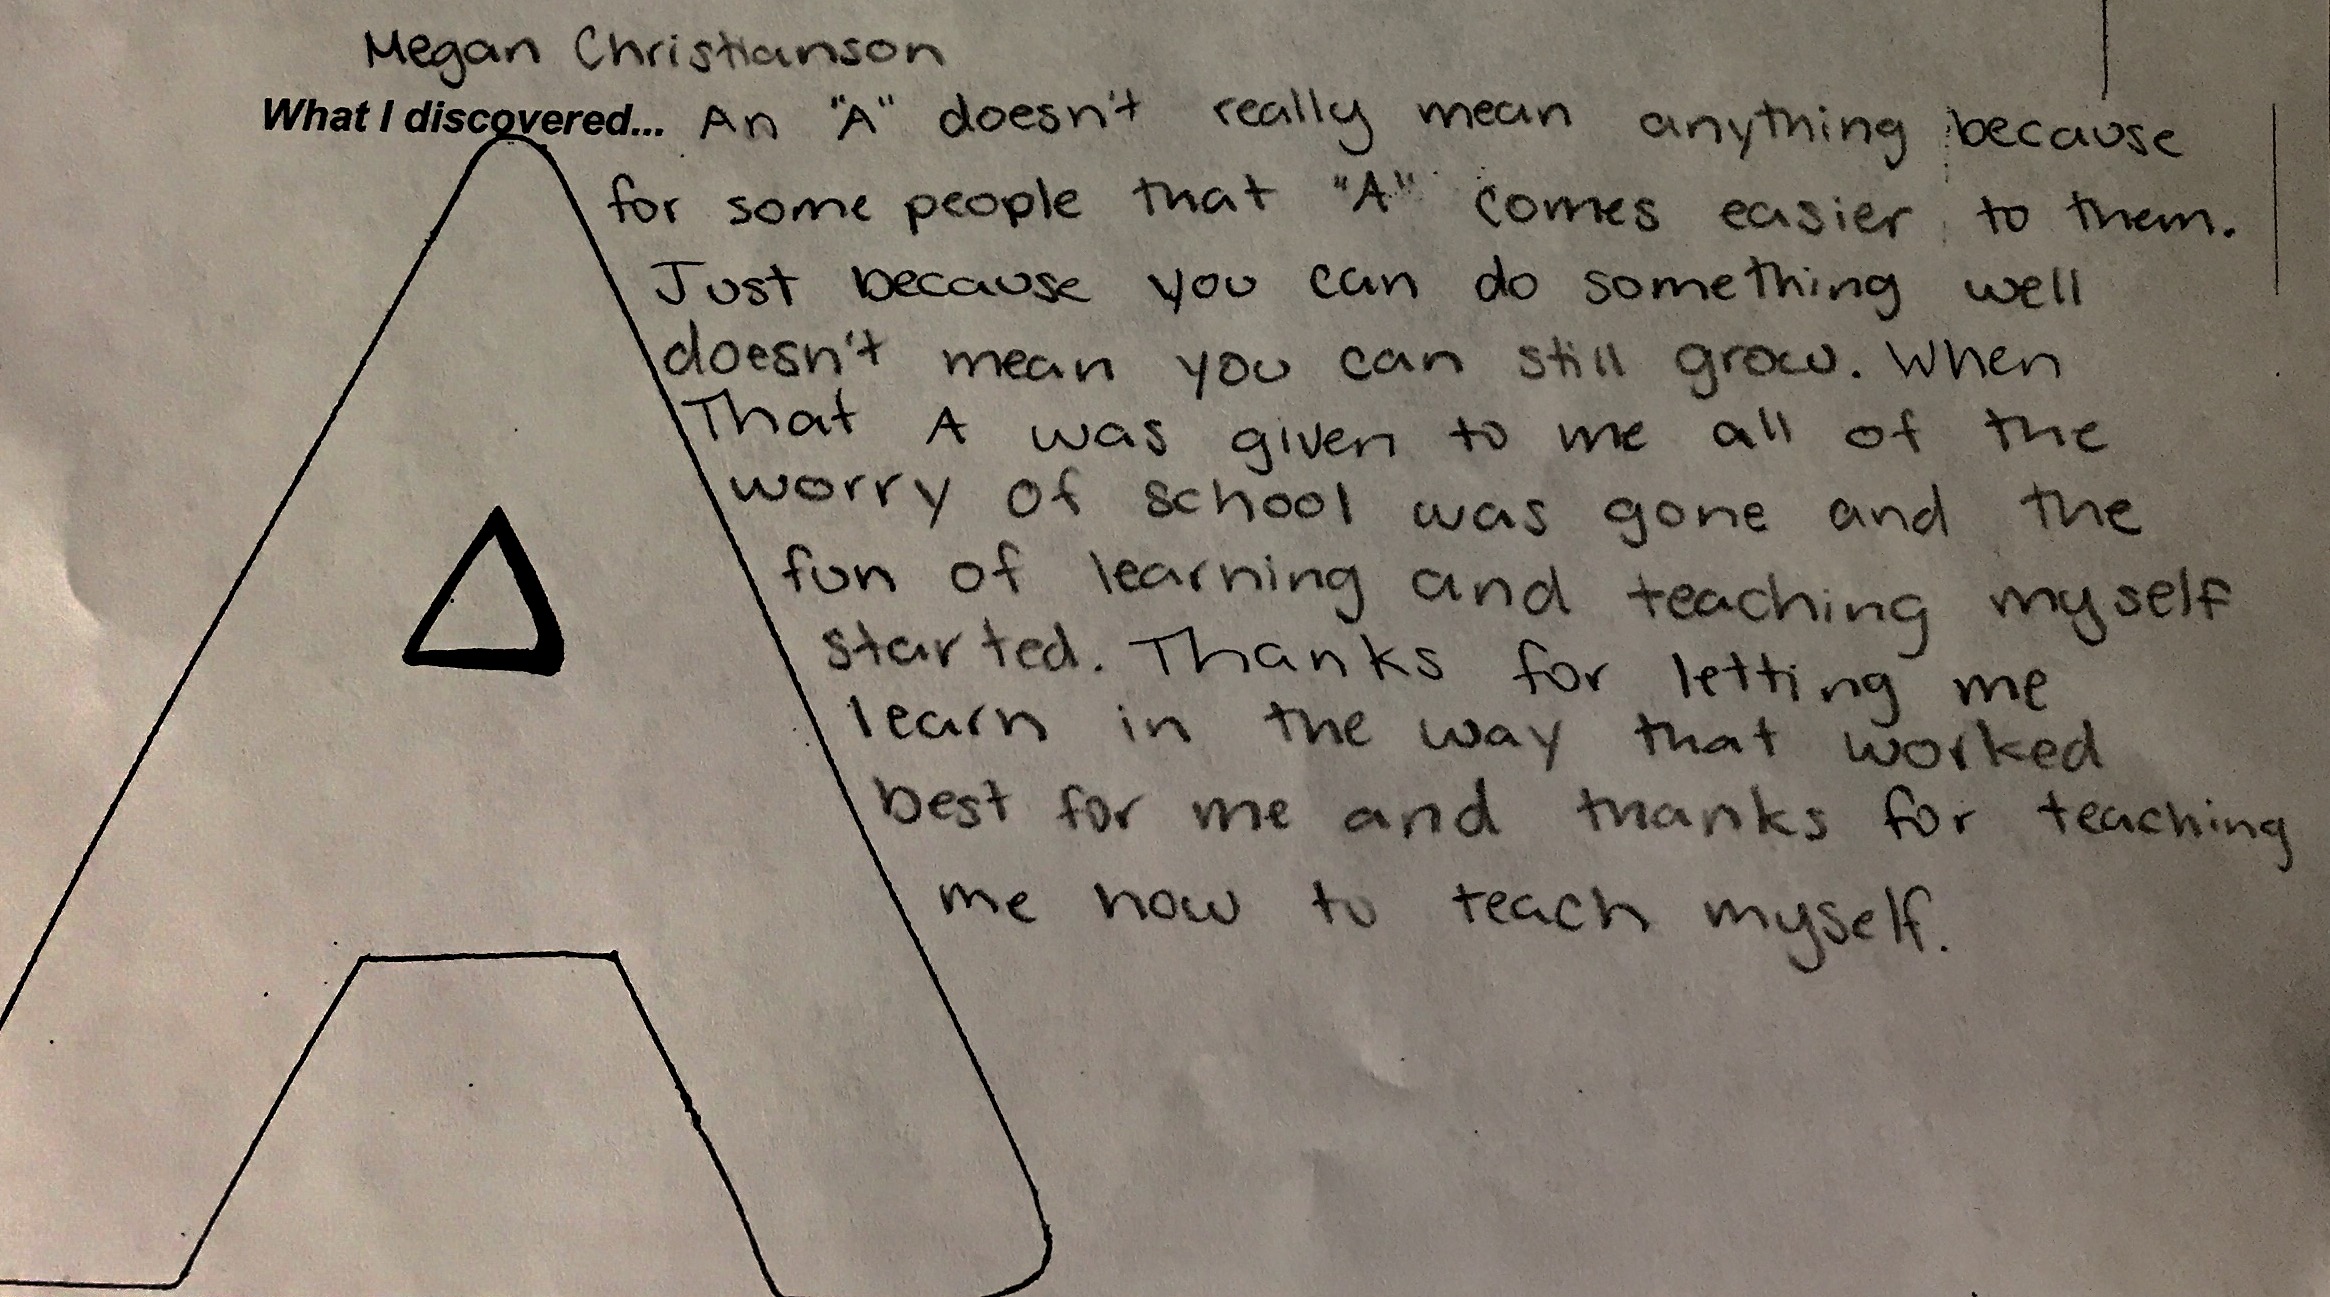 Megan Christianson
What I discovered... An "A" doesn't really mean anything because
for some people that "A" comes easier to them.
Just because you can do something well
doesn't mean you can still grow. When
That A was given to me all of the
worry of school was gone and the
fun of learning and teaching myself
started. Thanks for letting me
learn in the way that worked
best for me and thanks for teaching
me how to teach myself.